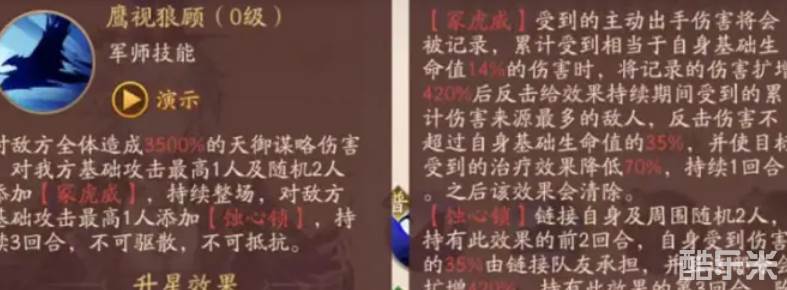 鹰视狼顾（0级）
军师技能
演示
对敌方全体造成3500%的天御谋略伤害
，对我方基础攻击最高1人及随机2人
添加【冢虎威】，持续整场，对敌方
基础攻击最高1人添加【蚀心锁】，持
续3回合，不可驱散，不可抵抗。
升星效果
【冢虎威】受到的主动出手伤害将会
被记录，累计受到相当于自身基础生
命值14%的伤害时，将记录的伤害扩增
420%后反击给效果持续期间受到的累
计伤害来源最多的敌人，反击伤害不
超过自身基础生命值的35%，并使目标
受到的治疗效果降低70%，持续1回合
。之后该效果会清除。
普
【蚀心锁】链接自身及周围随机2人，
持有此效果的前2回合，自身受到伤害
的35%由链接队友承担，并
会
扩增420%
持有此效果的第3回合
酷乐米